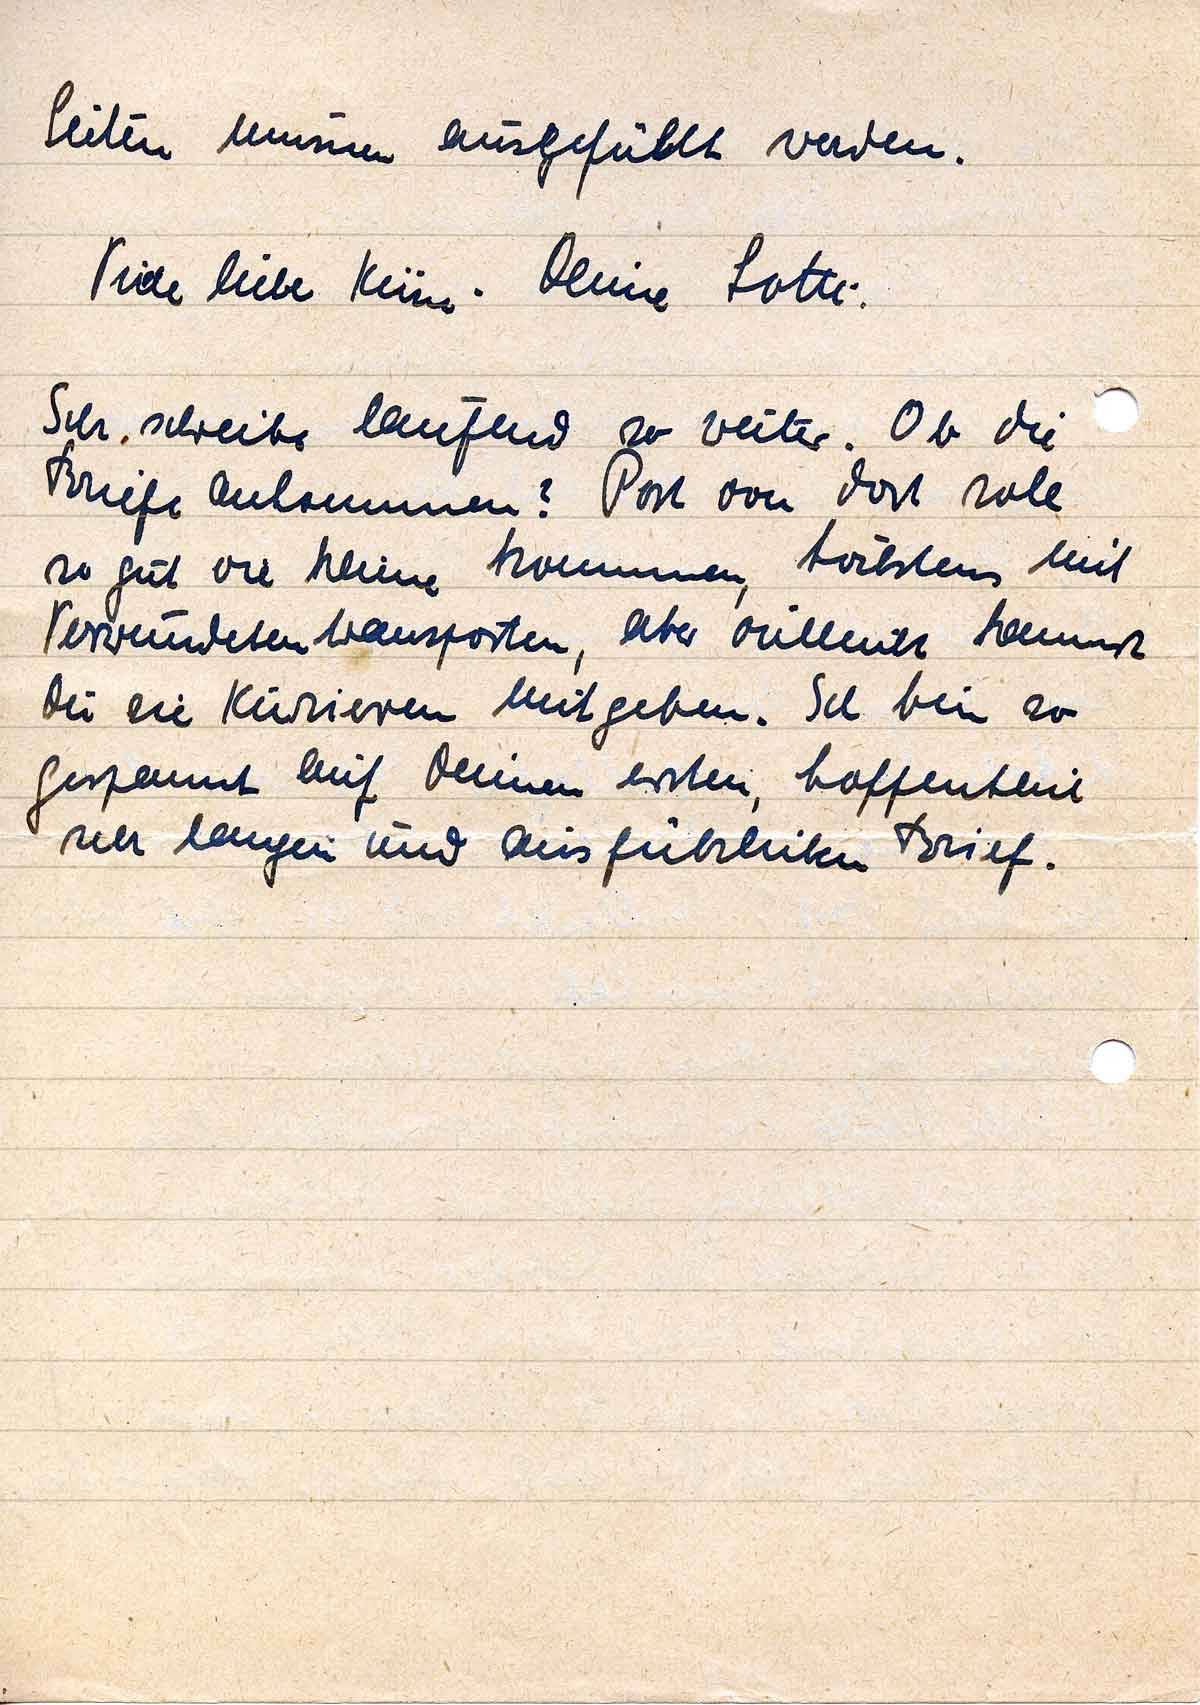 Seiten müssen ausgefüllt werden.
Viele liebe Küsse. Deine Lotte.
Ich schreibe laufend so weiter. Ob die
Briefe ankommen? Post von dort soll
so gut wie keine kommen, höchstens mit
Verwundetentransporten, aber vielleicht kannst
Du sie Kurieren mitgeben. Ich bin so
gespannt auf Deinen ersten, hoffentlich
sehr langen und ausführlichen Brief.